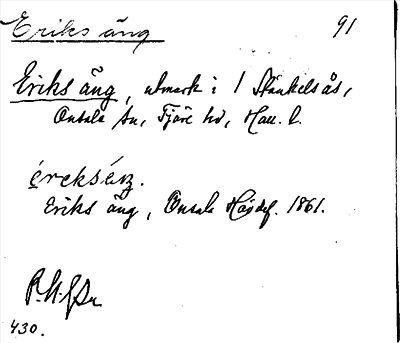 Eriks äng 91
Eriks äng, utmark i 1 Stänkelsås,
Onsala sn, Fjäre hd, Hall. l.
érekséŋ.
Eriks äng, Onsala Hajdef. 1861.
430.